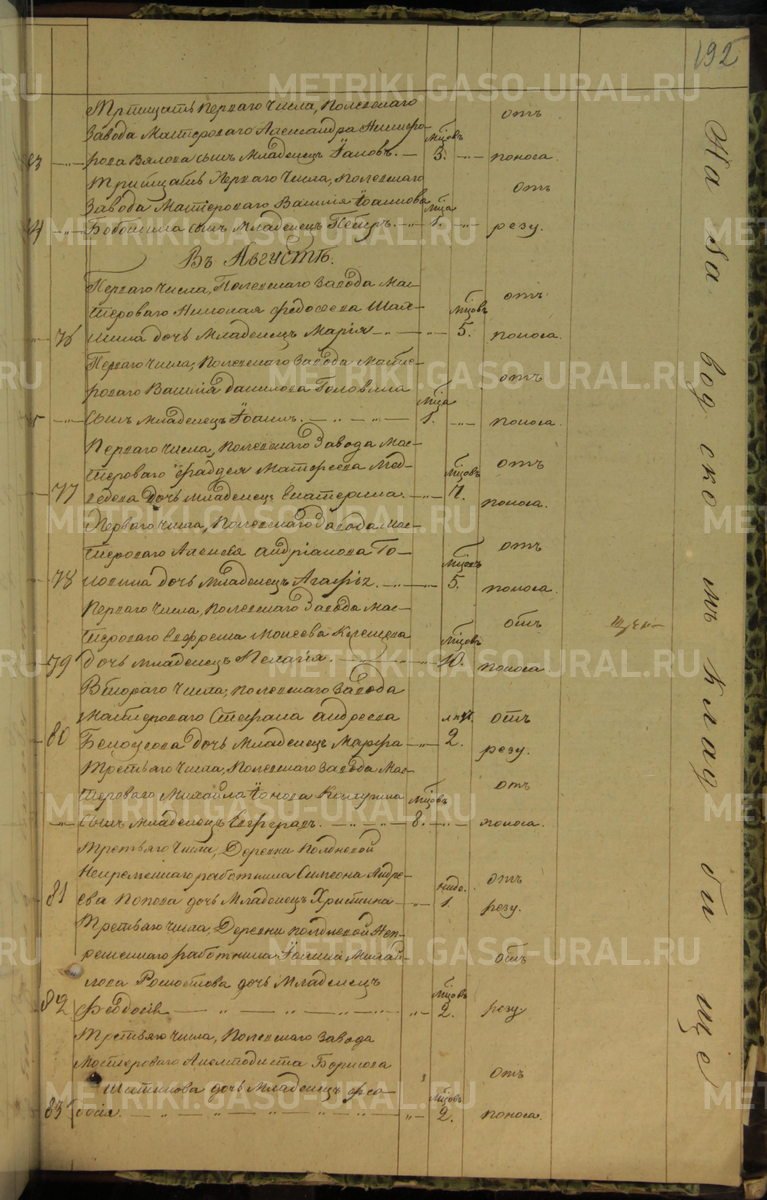 192
Тритцать Перваго Числа, Полевскаго
Завода Мастероваго Александра Никифо-
рова Вялова сынъ Младенецъ Іаковъ. — Мцовъ 3. отъ поноса.
Тритцать Перваго Числа, Полевскаго
Завода Мастероваго Василія Іоаннова Мца
сынъ Младенецъ Петръ — 1. отъ резу.
Въ Августѣ.
Перваго Числа, Полевскаго Завода Мас-
тероваго Николая Федосеева Шах-
76 мина дочь Младенецъ Марія — Мцовъ 5. отъ поноса.
Перваго Числа, Полевскаго Завода Масте-
роваго Василія Данилова Головина
сынъ Младенецъ Іоаннъ. — Мца 1. отъ поноса.
Перваго Числа, Полевскаго Завода Мас-
тероваго Фаддея Матфеева Мед-
77 ведева дочь Младенецъ Екатерина. — Мцовъ отъ поноса.
Перваго Числа, Полевскаго Завода Мас-
тероваго Алексея Андріанова
78 дочь Младенецъ Агафья. — Мцовъ 5. отъ поноса.
Перваго Числа, Полевскаго Завода Мас-
тероваго Ефрема Моисеева
79 дочь Младенецъ Пелагія. — Мцовъ 10. отъ поноса
Втораго Числа, Полевскаго Завода
Мастероваго Стефана Андреева
80 Белоусова дочь Младенецъ Марфа — 2. отъ резу.
Третьяго Числа, Полевскаго Завода Мас-
тероваго Михайла Іонова
сынъ Младенецъ Евграфъ. — Мцовъ 8. отъ поноса.
Третьяго Числа, Деревни Полдневой
Непременнаго работника Симеона Андре-
81 ева Попова дочь Младенецъ Христина — 1. отъ резу.
Третьяго Числа, Деревни Полдневой Неп-
ременнаго работника Михай-
лова дочь Младенецъ
82 Феодосія — Мцовъ 2. отъ резу
Третьяго Числа, Полевскаго Завода
Мастероваго Борисова
дочь Младенецъ Фео-
83 досія. — Мцовъ 2. отъ поноса.
На Заводскомъ Кладбище
METRIKI.GASO-URAL.RU